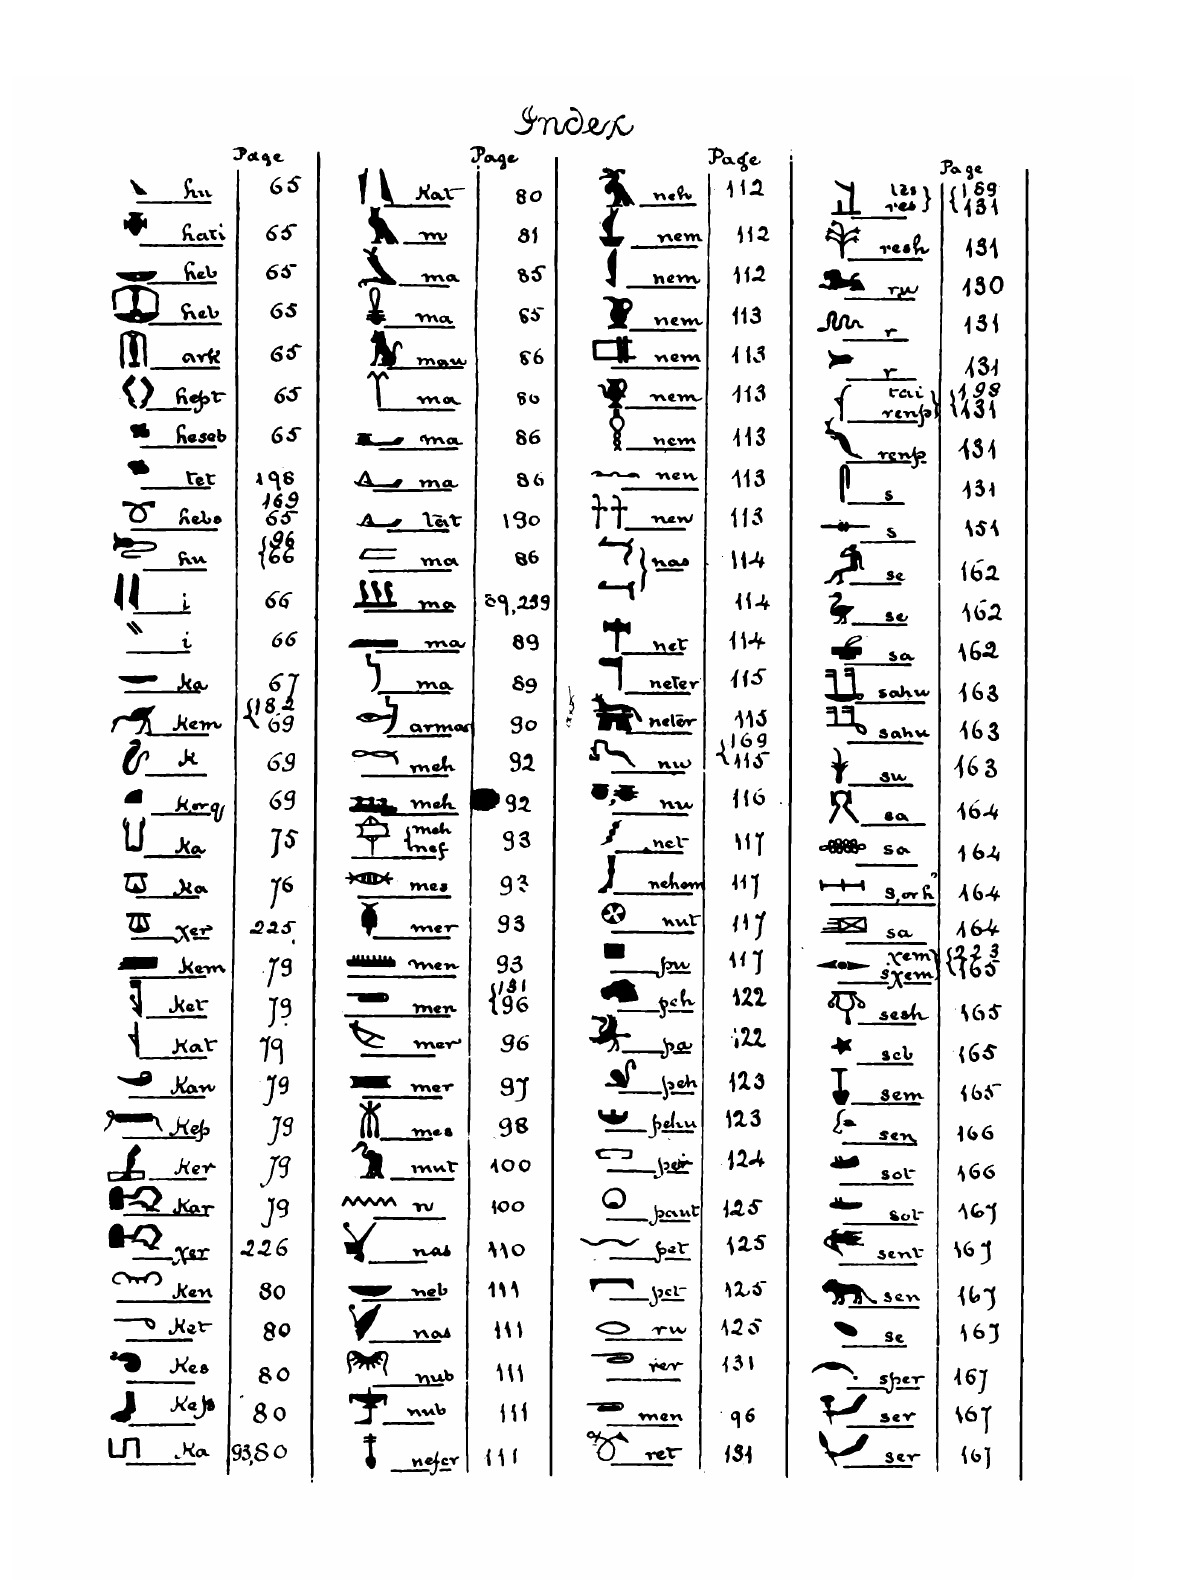 Index
Page
hu 65
hati 65
heb 65
heb 65
ark 65
hept 65
heseb 65
tet 198
169
hebs 65
hu {96
66
i 66
i 66
Ka 67
Kem {182
69
K 69
Korq 69
Ka 75
Ka 76
χer 225
Kem 79
Ket 79
Kat 79
Kan 79
Kep 79
Ker 79
Kar 79
χer 226
Ken 80
Ket 80
Kes 80
Kep 80
Ka 93,80
Page
Kat 80
m 81
ma 85
ma 85
mau 86
ma 86
ma 86
ma 86
tāt 190
ma 86
ma 89,239
ma 89
ma 89
armas 90
meh 92
meh 92
{meh
nef 93
mes 93
mer 93
men 93
men {131
96
mer 96
mer 97
mes 98
mut 100
n 100
nas 110
neb 111
nas 111
nub 111
nub 111
nefer 111
Page
neh 112
nem 112
nem 112
nem 113
nem 113
nem 113
nem 113
nen 113
nen 113
}nas 114
114
net 114
neter 115
neter 115
nu {169
115
nu 116
net 117
nehem 117
nut 117
pu 117
peh 122
pa 122
peh 123
pehu 123
per 124
paut 125
pet 125
pet 125
ru 125
rer 131
men 96
ret 131
Page
res} {131
resh 131
ru 130
r 131
r 131
tai {198
renp} 131
renp 131
s 131
s 151
se 162
se 162
sa 162
sahu 163
sahu 163
su 163
sa 164
sa 164
s, or h? 164
sa 164
χem} {223
sχem 165
sesh 165
seb 165
sem 165
sen 166
sot 166
sot 167
sent 167
sen 167
se 167
sper 167
ser 167
ser 167